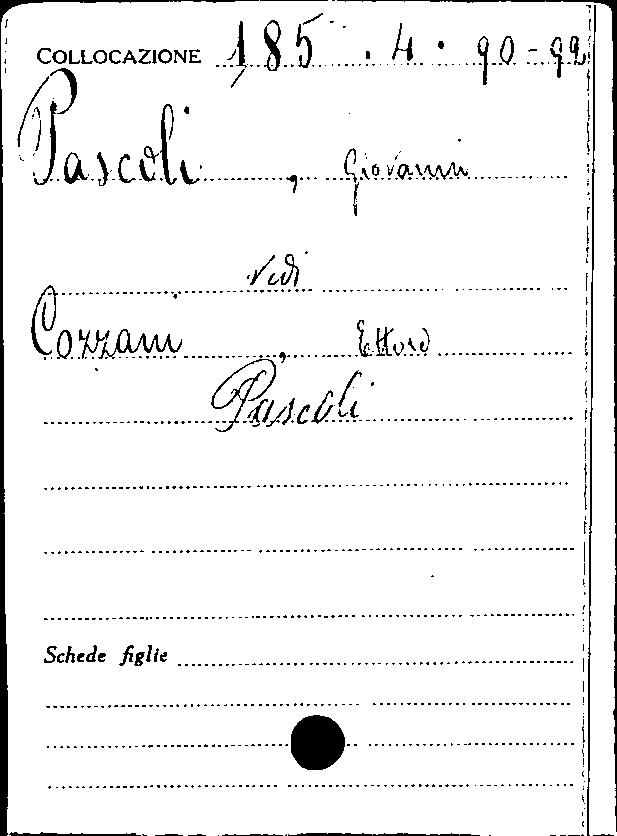 COLLOCAZIONE 185.4.90-92
Pascoli, Giovanni
Vedi
Cozzani, Ettore
Pascoli
Schede figlie